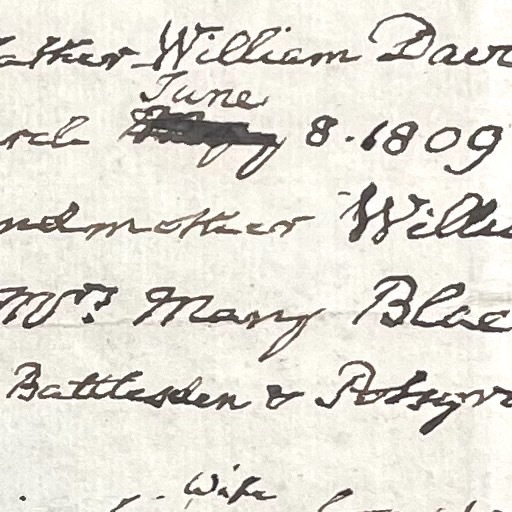 ather William Davi
June
rch 8.1809
ndmother Willia
Mrs Mary Blac
Battlesden & Potsgro
Wife